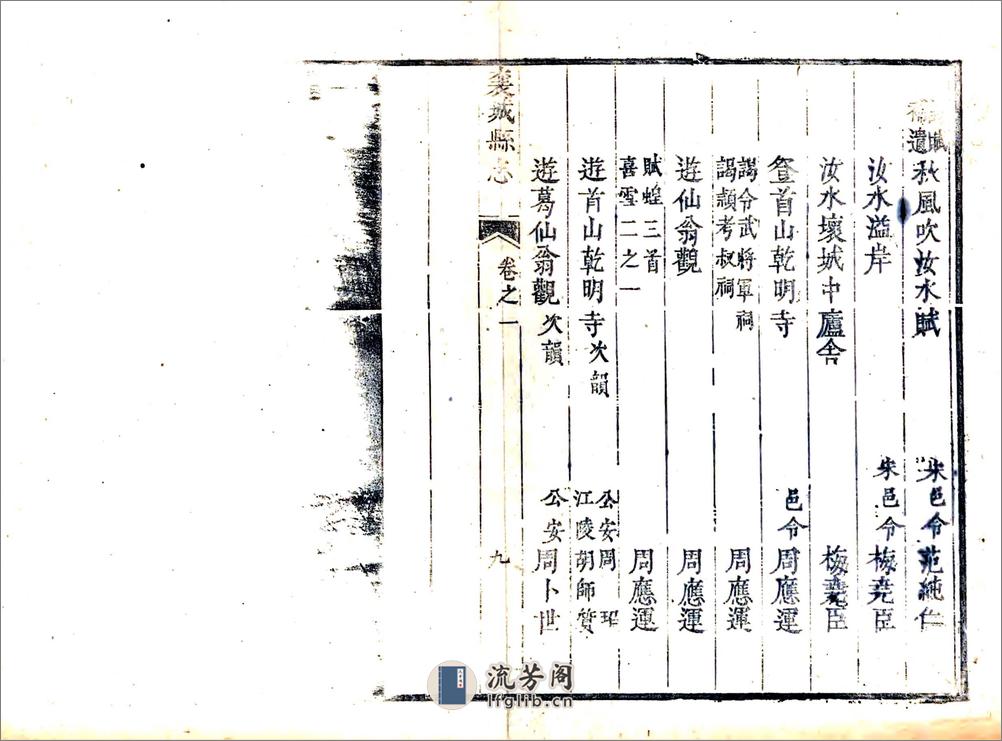 賦
補遺
秋風吹汝水賦 宋邑令范純仁
汝水溢岸 宋邑令梅堯臣
汝水壞城中廬舍 梅堯臣
登首山乾明寺 邑令周應運
謁令武將軍祠
謁潁考叔祠 周應運
遊仙翁觀 周應運
賦蝗三首
喜雪二之一 周應運
遊首山乾明寺次韻 公安周珺
江陵胡師質
遊葛仙翁觀次韻 公安周卜世
襄城縣志 卷之一 九
流芳阁
lfglib.cn